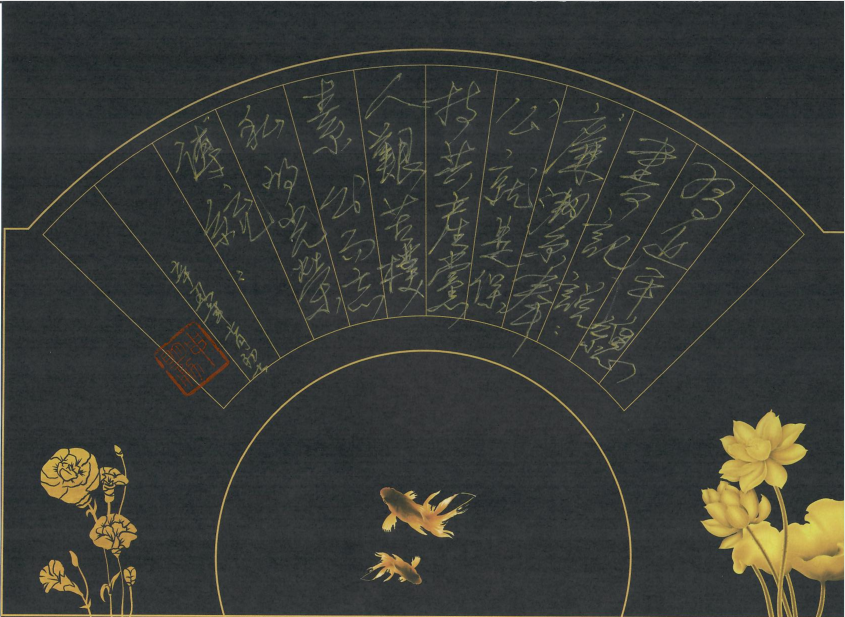 習近平總
書記說：
廉潔奉
公就是保
持共產黨
人艱苦樸
素公而忘
私的光榮
傳統
辛丑年